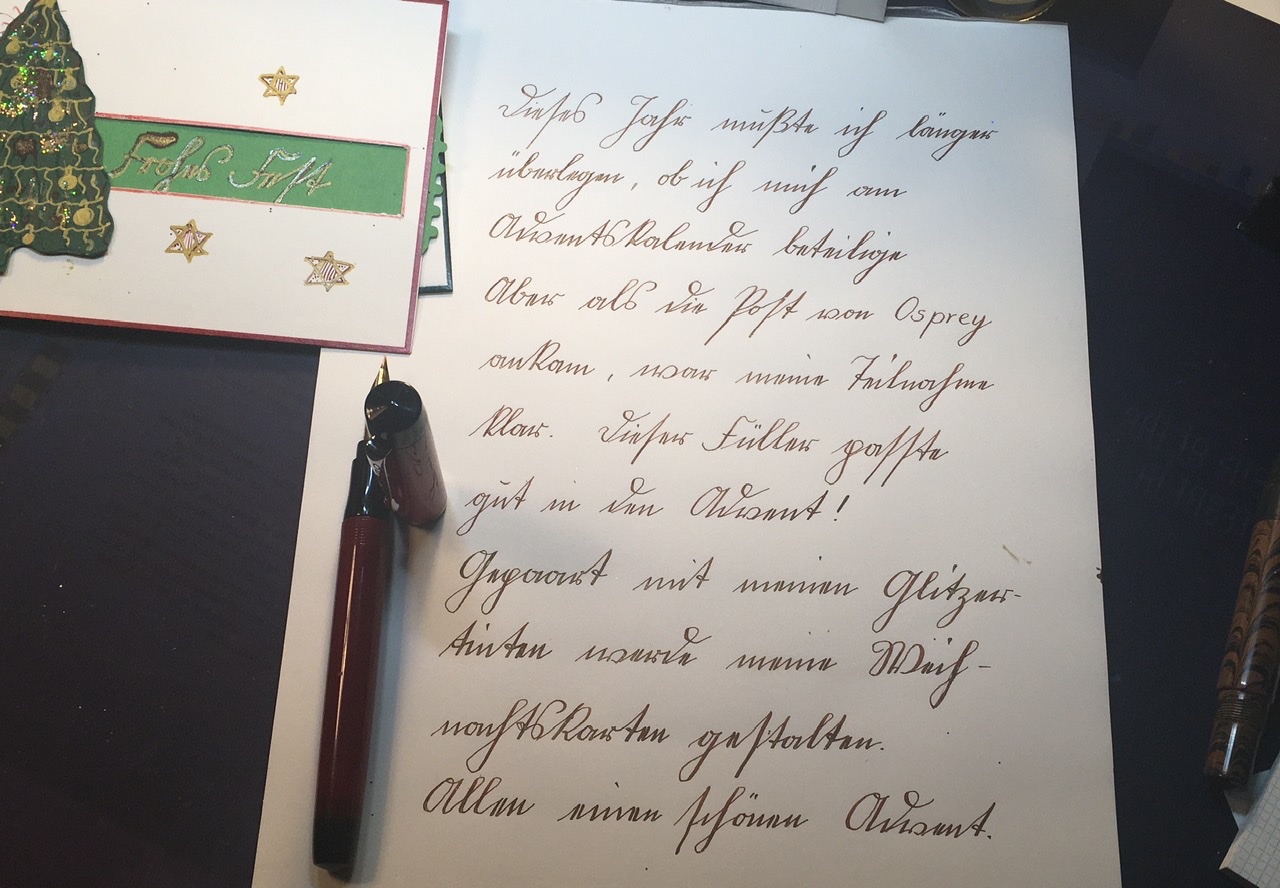 Frohes Fest
Dieses Jahr mußte ich länger
überlegen, ob ich mich am
Adventskalender beteilige
Aber als die Post von Osprey
ankam, war meine Teilnahme
klar. Dieser Füller passte
gut in den Advent!
Gepaart mit meinen Glitzer-
tinten werde meine Weih-
nachtskarten gestalten.
Allen einen schönen Advent.